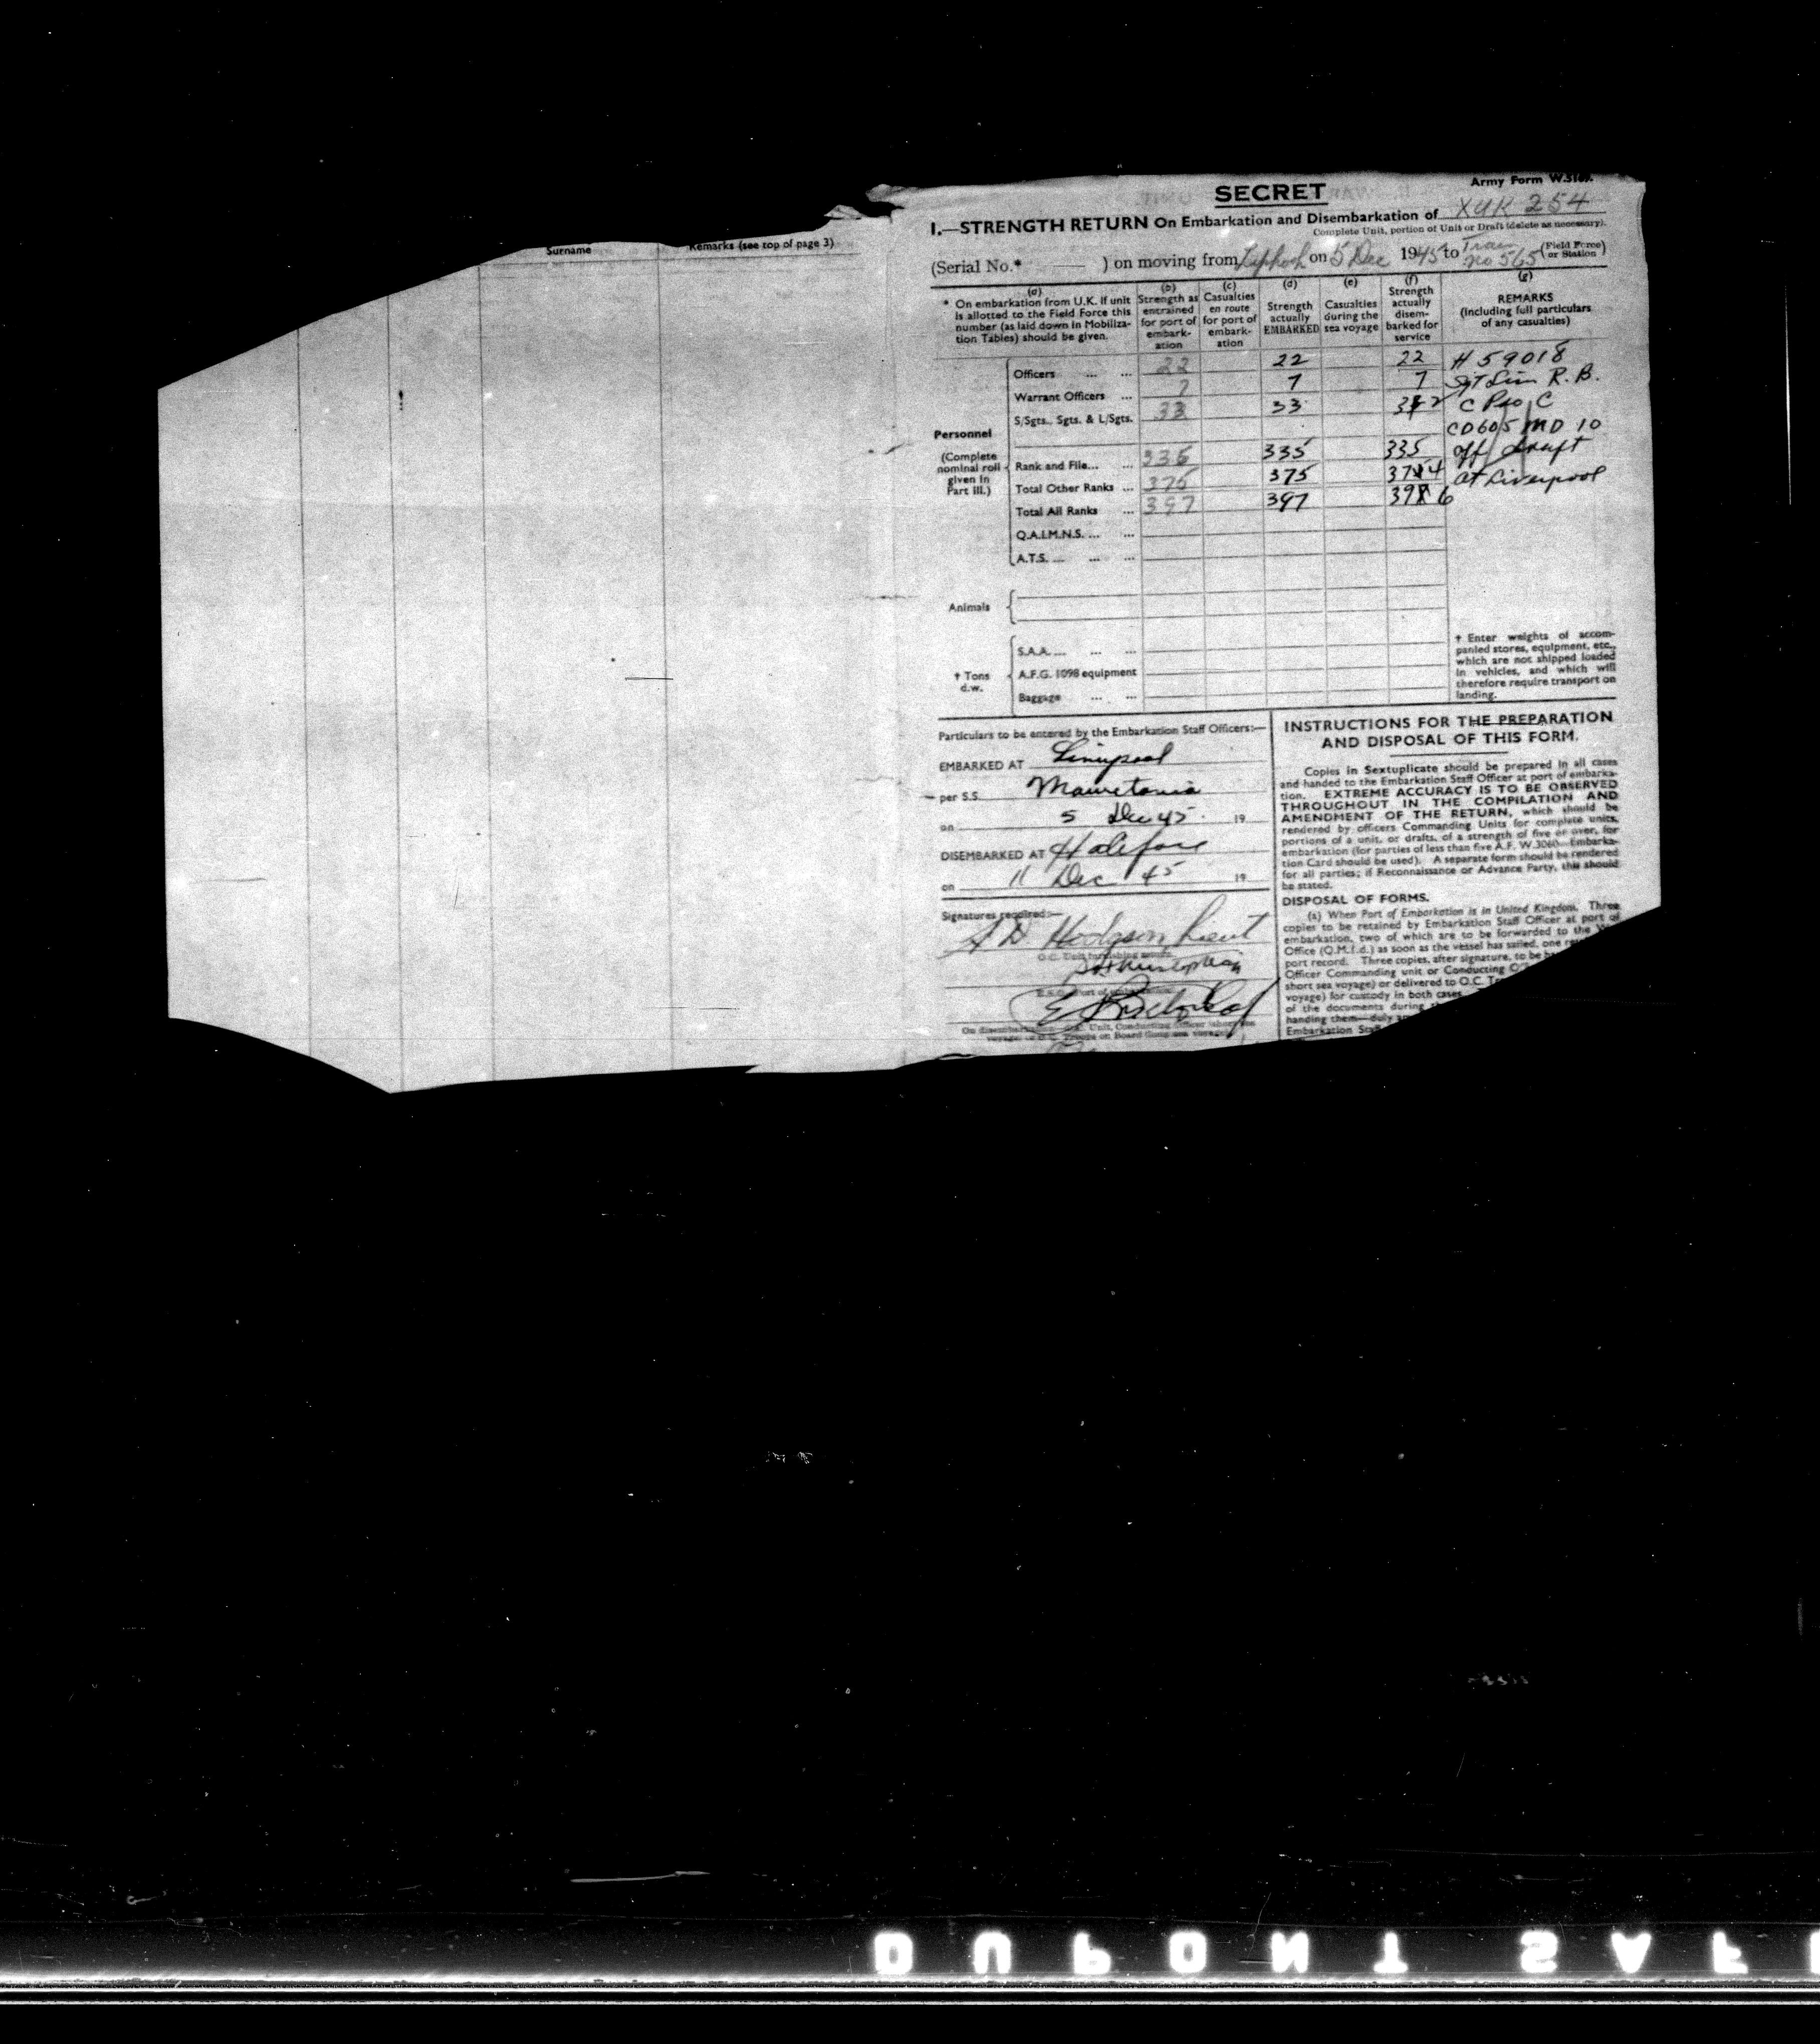 Surname Remarks (see top of page 3)
SECRET
Army Form W.5169.
I.—STRENGTH RETURN On Embarkation and Disembarkation of XUK 254
Complete Unit, portion of Unit or Draft (delete as necessary).
(Serial No.* — ) on moving from Liphook on 5 Dec 1945 to Train no 565 (Field Force or Station)
(a)
* On embarkation from U.K. if unit
is allotted to the Field Force this
number (as laid down in Mobiliza-
tion Tables) should be given.
(b)
Strength as
entrained
for port of
embark-
ation
(c)
Casualties
en route
for port of
embark-
ation
(d)
Strength
actually
EMBARKED
(e)
Casualties
during the
sea voyage
(f)
Strength
actually
disem-
barked for
service
(g)
REMARKS
(including full particulars
of any casualties)
Personnel
(Complete
nominal roll
given in
Part III.)
Officers ... ... 22 22 22
Warrant Officers ... 7 7 7
S/Sgts., Sgts. & L/Sgts. 33 33 32
Rank and File... ... 335 335 335
Total Other Ranks ... 375 375 374
Total All Ranks ... 397 397 396
Q.A.I.M.N.S. ... ...
A.T.S. ... ... ...
H 59018
Sgt Sim R. B.
C Pro C
CD605 MD 10
off draft
at Liverpool
Animals
† Tons
d.w.
S.A.A. ... ... ...
A.F.G. 1098 equipment
Baggage ... ...
† Enter weights of accom-
panied stores, equipment, etc.,
which are not shipped loaded
in vehicles, and which will
therefore require transport on
landing.
Particulars to be entered by the Embarkation Staff Officers:—
EMBARKED AT Liverpool
per S.S. Mauretania
on 5 Dec 45 19
DISEMBARKED AT Halifax
on 11 Dec 45 19
Signatures required:—
Hodgson Lieut
O.C. Unit furnishing return.
E.S.O. Port of embarkation.
On disembarkation Unit, Conducting Officer
voyage, or O.C. Troops on Board (long sea voyage)
INSTRUCTIONS FOR THE PREPARATION
AND DISPOSAL OF THIS FORM.
Copies in Sextuplicate should be prepared in all cases
and handed to the Embarkation Staff Officer at port of embarka-
tion. EXTREME ACCURACY IS TO BE OBSERVED
THROUGHOUT IN THE COMPILATION AND
AMENDMENT OF THE RETURN, which should be
rendered by officers Commanding Units for complete units,
portions of a unit, or drafts, of a strength of five or over, for
embarkation (for parties of less than five A.F. W.3060 Embarka-
tion Card should be used). A separate form should be rendered
for all parties; if Reconnaissance or Advance Party, this should
be stated.
DISPOSAL OF FORMS.
(a) When Port of Embarkation is in United Kingdom. Three
copies to be retained by Embarkation Staff Officer at port of
embarkation, two of which are to be forwarded to the
Office (Q.M.I.d.) as soon as the vessel has sailed, one
port record. Three copies, after signature, to be
Officer Commanding unit or Conducting
short sea voyage) or delivered to O.C.
voyage) for custody in both cases.
of the documents during
handing them—duly
Embarkation Staff
DUPONT SAF